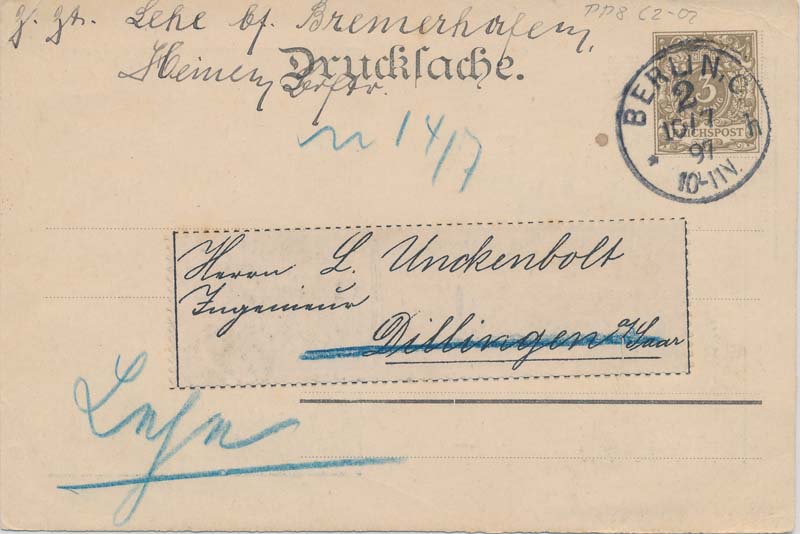 z. Zt. Lehe bf. Bremerhafen,
PP8 C2-02
Drucksache.
Heinen
BERLIN, C
2
3
REICHSPOST
97
10-11N.
14/7
Herrn L. Unckenbolt
Ingenieur
Dillingen a/Saar
Lehe